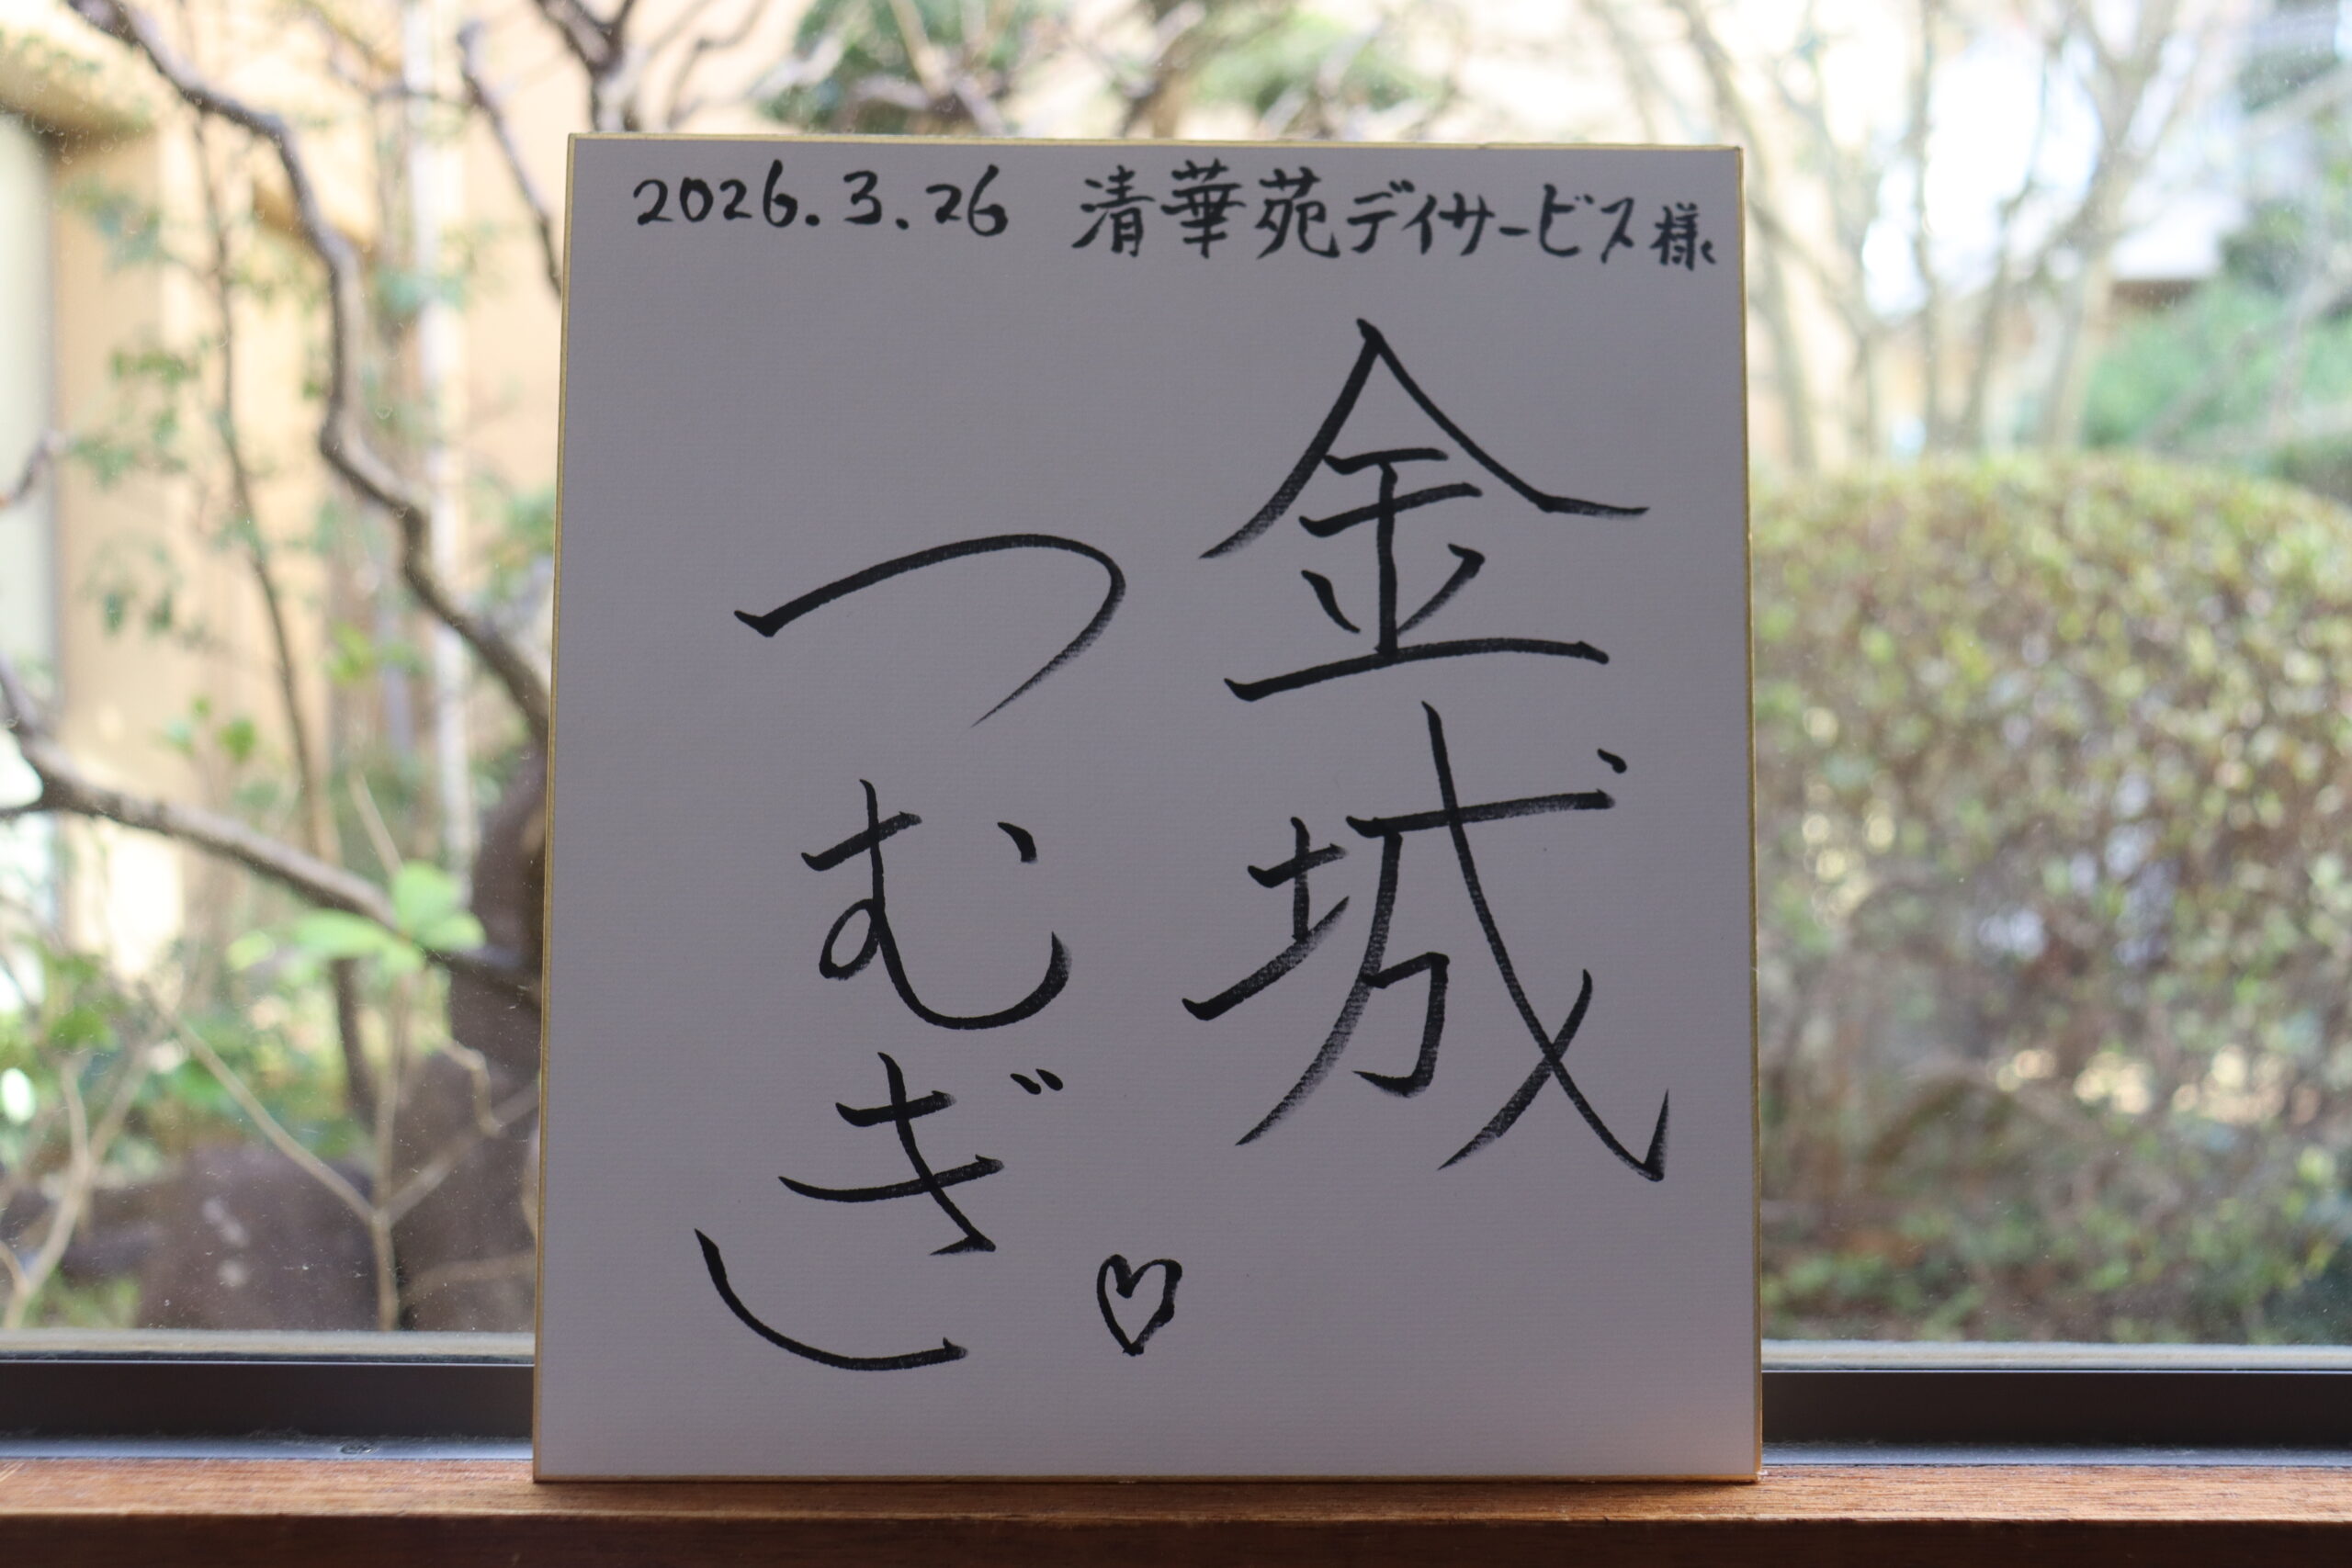 2026.3.26 清華苑デイサービス様
金城
つむぎ♡